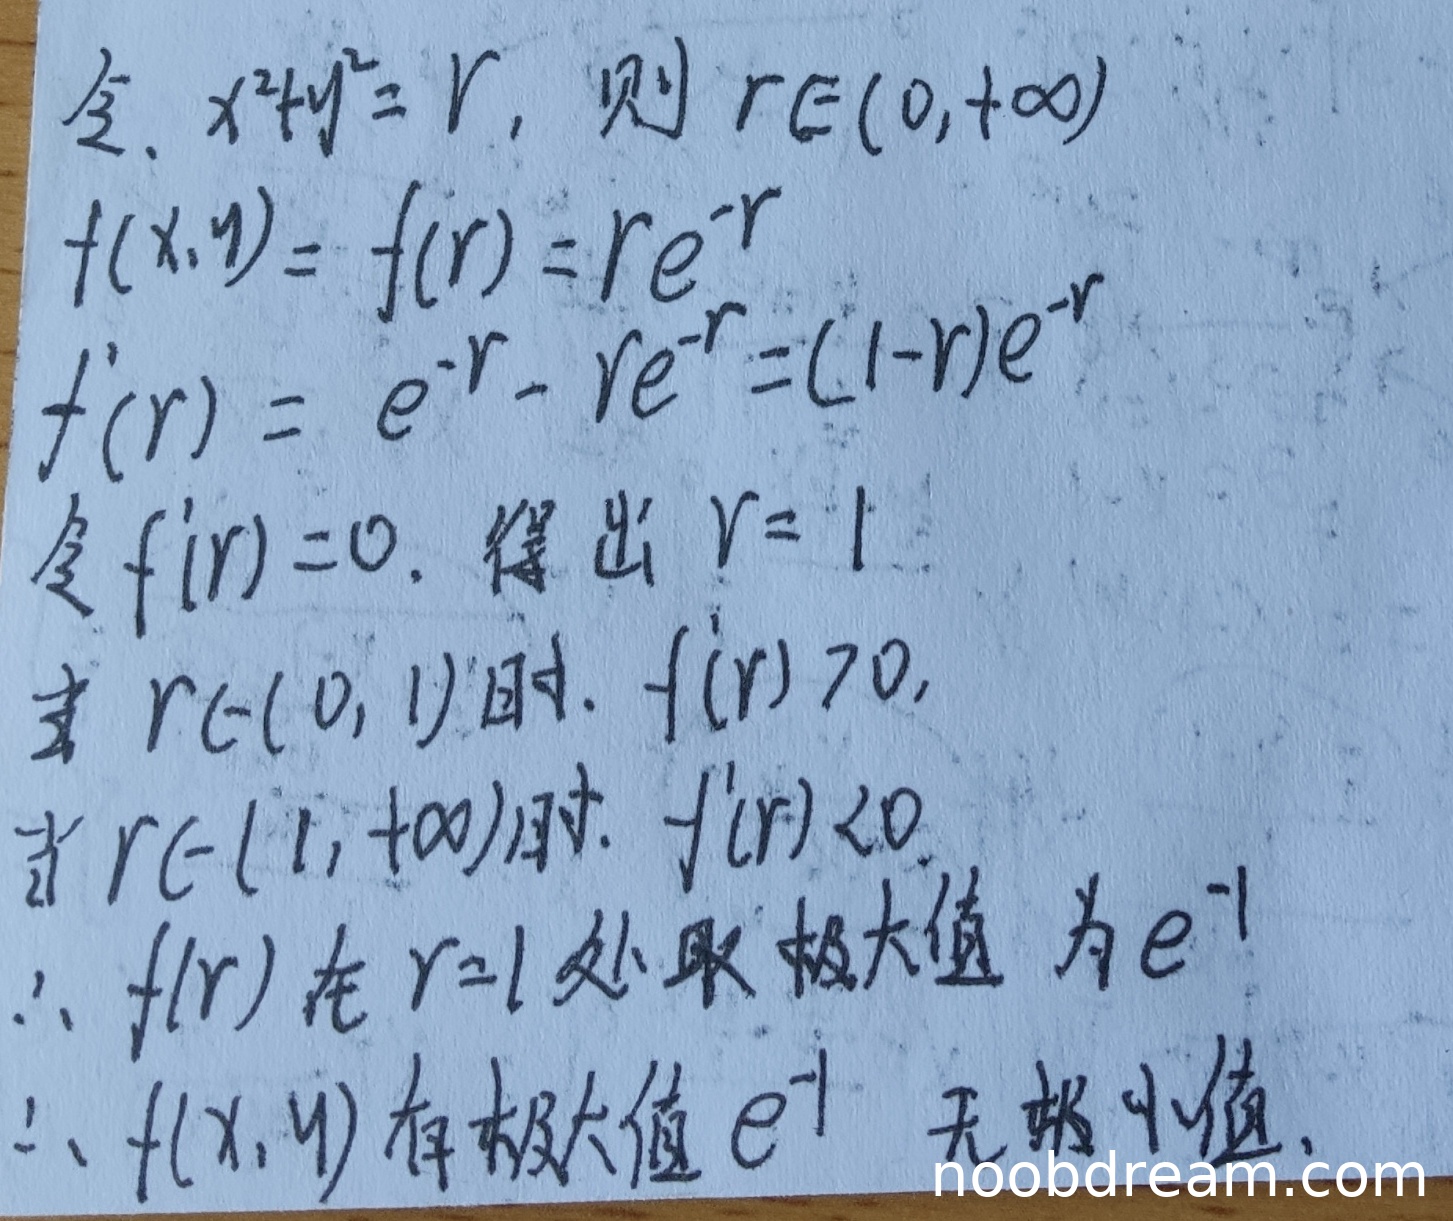 令. x²+y²=r, 则 r∈(0,+∞)
f(x,y)= f(r)=re⁻ʳ
f'(r) = e⁻ʳ - re⁻ʳ=(1-r)e⁻ʳ
令 f'(r)=0. 得出 r=1
当 r∈(0,1)时. f'(r)>0,
当 r∈(1,+∞)时. f'(r)<0.
∴ f(r) 在 r=1处取极大值 为e⁻¹
∴ f(x,y) 有极大值 e⁻¹ 无极小值.
noobdream.com